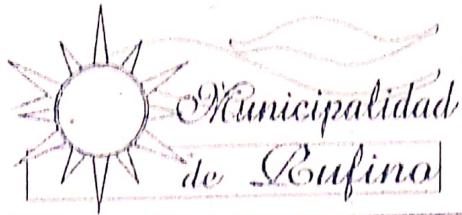 Municipalidad
de Rufino